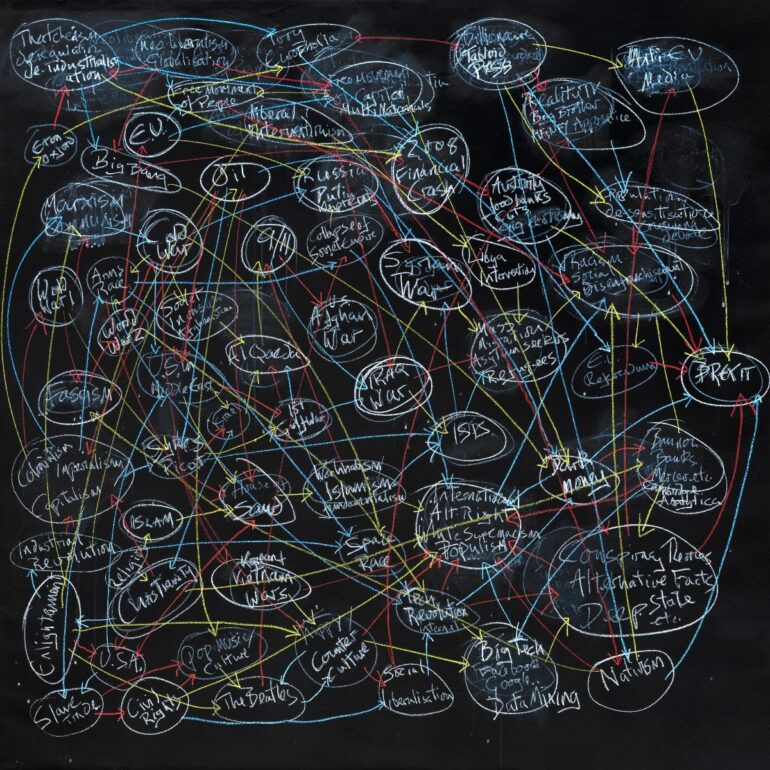 Thatcherism
Deregulation
de-industrialis
ation
Neo liberalism
Globalisation
Tory
Europhobia
Billionaire
Tabloid
Press
Anti EU
Media
Free Movement
of People
Free Movement
Capital
Multi-Nationals
Reality TV
Big Brother
Apprentice
Liberal
Interventionism
Eton
Oxford
E.U.
Big Bang
Oil
Russia
Putin
2008
Financial
Crash
Austerity
Foodbanks
Cuts
Marxism
Communism
Cold
War
9/11
Collapse of
Soviet Empire
Syrian
War
Libya
Intervention
Racism
Social
Disenfranchisement
World
War 1
Arms
Race
World
War 2
Soviet
Afghan
War
Mass
Migration
Asylum seekers
Refugees
EU
Referendum
BREXIT
Al Qaeda
Middle East
Fascism
Iraq
War
Israel
1st
Gulf War
ISIS
Sykes
Picot
Colonialism
Imperialism
Capitalism
House of
Saud
Wahhabism
Islamism
Fundamentalism
Dark
Money
Bannon
Banks
Mercer etc.
Cambridge
Analytica
International
Alt Right
White Supremacism
Populism
ISLAM
Industrial
Revolution
Religion
Christianity
Space
Race
Korean +
Vietnam
Wars
Conspiracy Theories
Alternative Facts
Deep State
etc.
Enlightenment
Tech
Revolution
U.S.A.
Pop Music
Culture
Hippy
Counter
Culture
Big Tech
Facebook
Google
Data Mining
Nativism
Slave
Trade
Civil
Rights
The Beatles
Social
Liberalisation